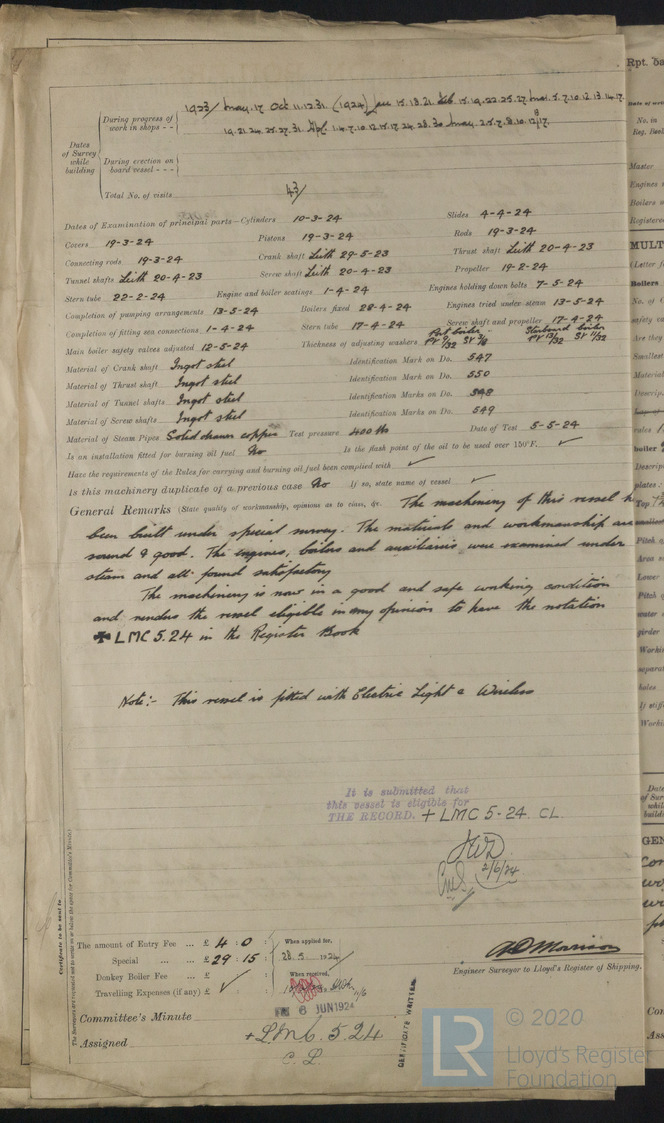 Rpt. 5a
1923/ May. 17 Oct 11.12.31 (1924) Jan 15.18.21 Feb 15.19.22.25.27 Mar. 5.7.10.12.13.14.17.
During progress of work in shops - -
19.21.24.25.27.31 Apl. 1.4.7.10.12.15.17.24.28.30 May. 2.5.7.8.10.12.17.
Dates of Survey while building
During erection on board vessel - - -
Total No. of visits 43/
Dates of Examination of principal parts—Cylinders 10-3-24 Slides 4-4-24
Covers 19-3-24 Pistons 19-3-24 Rods 19-3-24
Connecting rods 19-3-24 Crank shaft Leith 29-5-23 Thrust shaft Leith 20-4-23
Tunnel shafts Leith 20-4-23 Screw shaft Leith 20-4-23 Propeller 19-2-24
Stern tube 22-2-24 Engine and boiler seatings 1-4-24 Engines holding down bolts 7-5-24
Completion of pumping arrangements 13-5-24 Boilers fixed 28-4-24 Engines tried under steam 13-5-24
Completion of fitting sea connections 1-4-24 Stern tube 17-4-24 Screw shaft and propeller 17-4-24
Main boiler safety valves adjusted 12-5-24 Thickness of adjusting washers Port boiler Starboard boiler
Material of Crank shaft Ingot steel Identification Mark on Do. 547
Material of Thrust shaft Ingot steel Identification Mark on Do. 550
Material of Tunnel shafts Ingot steel Identification Marks on Do. 548
Material of Screw shafts Ingot steel Identification Marks on Do. 549
Material of Steam Pipes Solid drawn copper Test pressure 400 lbs Date of Test 5-5-24
Is an installation fitted for burning oil fuel No Is the flash point of the oil to be used over 150°F. ✓
Have the requirements of the Rules for carrying and burning oil fuel been complied with ✓
Is this machinery duplicate of a previous case No If so, state name of vessel ✓
General Remarks (State quality of workmanship, opinions as to class, &c. The machinery of this vessel h
been built under special survey. The materials and workmanship are
sound & good. The engines, boilers and auxiliaries were examined under
steam and all found satisfactory
The machinery is now in a good and safe working condition
and renders the vessel eligible in my opinion to have the notation
✠ LMC 5.24 in the Register Book
Note:- This vessel is fitted with Electric Light & Wireless
It is submitted that
this vessel is eligible for
THE RECORD. + LMC 5-24. CL.
2/6/24
Certificate to be sent to
The amount of Entry Fee ... £ 4 : 0 : When applied for,
Special ... ... £ 29 : 15 : 28.5.1924
Donkey Boiler Fee ... £ : : When received,
Travelling Expenses (if any) £ ✓
A D Morrison
Engineer Surveyor to Lloyd's Register of Shipping.
Committee's Minute 6 JUN 1924
Assigned + LMC 5.24
C.L.
CERTIFICATE WRITTEN
LR
© 2020
Lloyd's Register
Foundation